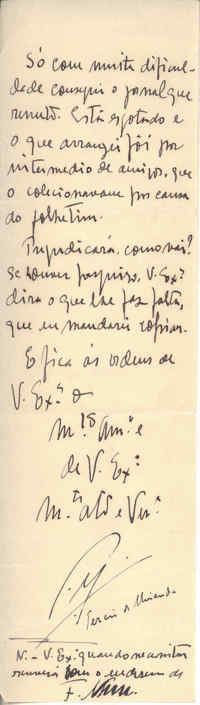 Só com muita dificul-
dade consegui o jornal que
remeto. Está esgotado e
o que arranjei foi por
intermedio de amigos, que
o colecionavam por causa
do folhetim.
Prejudicará, como vai?
Se houver prejuizo, V. Exª
dirá o que lhe faz falta,
que eu mandarei copiar.
E fica ás ordens de
V. Exª o
m.to Am.º e
de V. Ex.ª
M.to att.º e Ven.º
de Miranda
N. - V. Ex.ª quando necessitar
com o endereço de